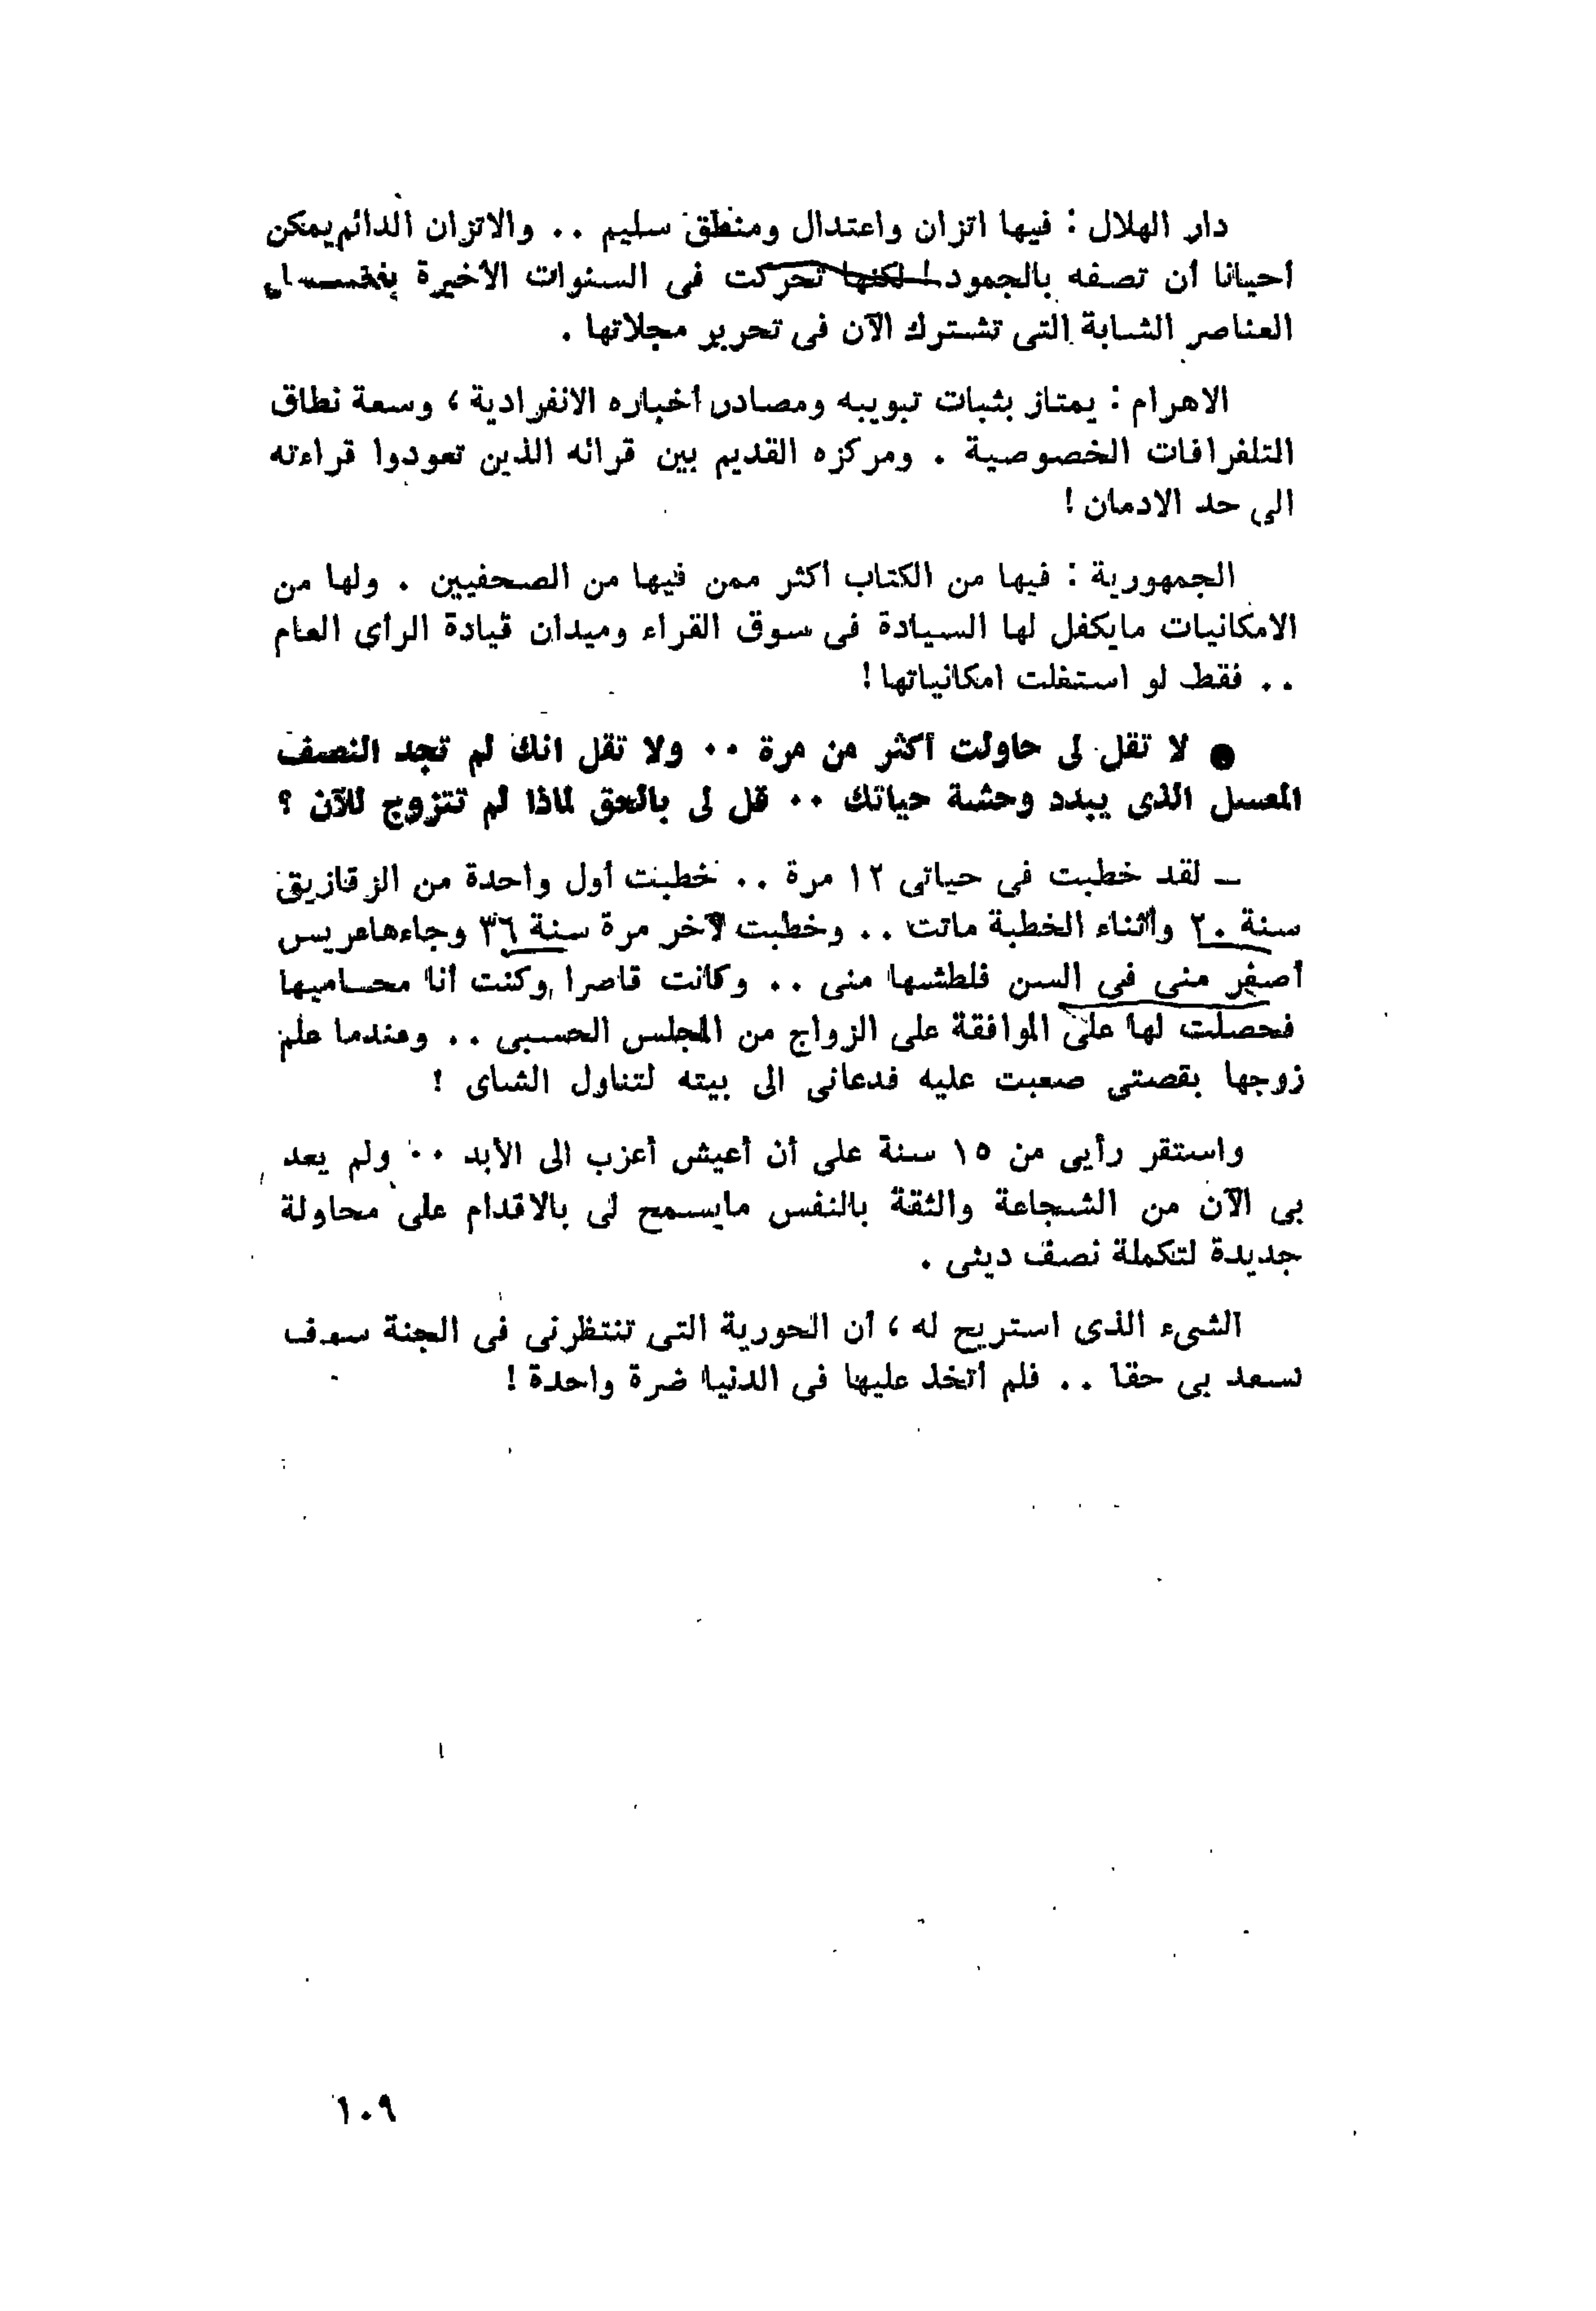 دار الهلال : فيها اتزان واعتدال ومنطق سليم . . والاتزان الدائم يمكن
أحيانا أن تصفه بالجمود ! لكنها تحركت فى السنوات الأخيرة بفضل
العناصر الشابة التى تشترك الآن فى تحرير مجلاتها .
الاهرام : يمتاز بثبات تبويبه ومصادر أخباره الانفرادية ، وسعة نطاق
التلغرافات الخصوصية . ومركزه القديم بين قرائه الذين تعودوا قراءته
الى حد الادمان !
الجمهورية : فيها من الكتاب أكثر ممن فيها من الصحفيين . ولها من
الامكانيات مايكفل لها السيادة فى سوق القراء وميدان قيادة الرأى العام
. . فقط لو استغلت امكانياتها !
● لا تقل لى حاولت أكثر من مرة . . ولا تقل انك لم تجد النصف
المعسل الذى يبدد وحشة حياتك . . قل لى بالحق لماذا لم تتزوج للآن ؟
ـ لقد خطبت فى حياتى ١٢ مرة . . خطبت أول واحدة من الزقازيق
سنة ٢٠ وأثناء الخطبة ماتت . . وخطبت لآخر مرة سنة ٣٦ وجاءها عريس
أصغر منى فى السن فلطشها منى . . وكانت قاصرا وكنت أنا محاميها
فحصلت لها على الموافقة على الزواج من المجلس الحسبى . . وعندما علم
زوجها بقصتى صعبت عليه فدعانى الى بيته لتناول الشاى !
واستقر رأيى من ١٥ سنة على أن أعيش أعزب الى الأبد . . ولم يعد
بى الآن من الشجاعة والثقة بالنفس مايسمح لى بالاقدام على محاولة
جديدة لتكملة نصف دينى .
الشىء الذى استريح له ، أن الحورية التى تنتظرنى فى الجنة سوف
تسعد بى حقا . . فلم أتخذ عليها فى الدنيا ضرة واحدة !
١٠٩